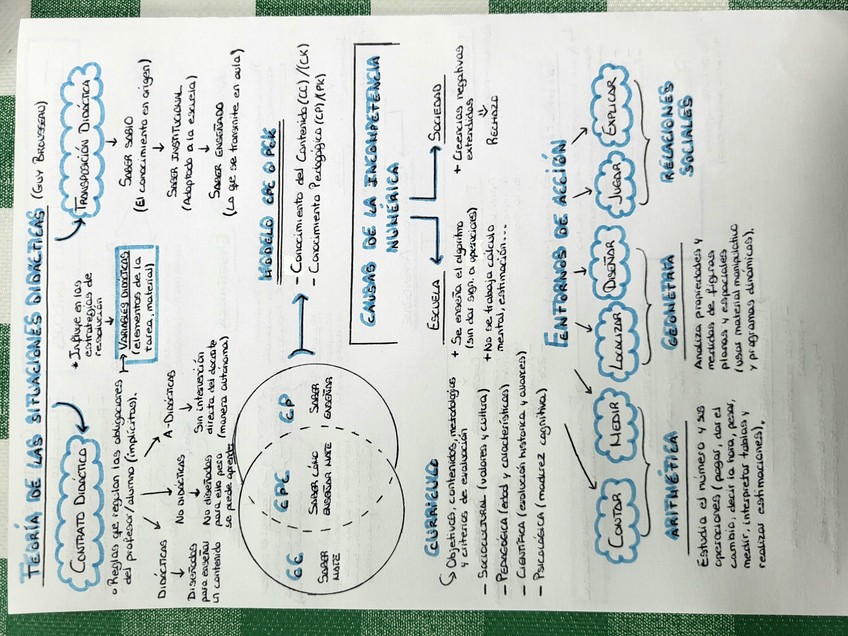 TEORÍA DE LAS SITUACIONES DIDÁCTICAS (GUY BROUSSEAU)
CONTRATO DIDÁCTICO
Reglas que regulan las obligaciones
del profesor/alumno (implícitas).
DIDÁCTICAS
Diseñados
para enseñar
un contenido
NO DIDÁCTICAS
No diseñados
para ello pero
se puede aprender
A-DIDÁCTICAS
Sin intervención
directa del docente
(manera autónoma)
* Influye en las
estrategias de
resolución
VARIABLES DIDÁCTICAS
(elementos de la
tarea, material)
TRANSPOSICIÓN DIDÁCTICA
SABER SABIO
(El conocimiento en origen)
SABER INSTITUCIONAL
(Adaptado a la escuela)
SABER ENSEÑADO
(Lo que se transmite en aula)
CC
SABER
MATE
CPC
SABER CÓMO
ENSEÑAR MATE
CP
SABER
ENSEÑAR
MODELO CPC O PCK
- Conocimiento del Contenido (CC)/(CK)
- Conocimiento Pedagógico (CP)/(PK)
CURRÍCULO
Objetivos, contenidos, metodologías
y criterios de evaluación
- SOCIOCULTURAL (valores y cultura)
- PEDAGÓGICA (edad y características)
- CIENTÍFICA (evolución histórica y avances)
- PSICOLÓGICA (madurez cognitiva)
CAUSAS DE LA INCOMPETENCIA
NUMÉRICA
ESCUELA
+ Se enseña el algoritmo
(sin dar sign. a operaciones)
+ No se trabaja cálculo
mental, estimación...
SOCIEDAD
+ Creencias negativas
extendidas
RECHAZO
ENTORNOS DE ACCIÓN
CONTAR
MEDIR
LOCALIZAR
DISEÑAR
JUGAR
EXPLICAR
ARITMÉTICA
Estudia el número y sus
operaciones (pagar, dar el
cambio, decir la hora, pesar,
medir, interpretar tablas y
realizar estimaciones).
GEOMETRÍA
Analiza propiedades y
medidas de figuras
planas y espaciales
(usar material manipulativo
y programas dinámicos).
RELACIONES
SOCIALES